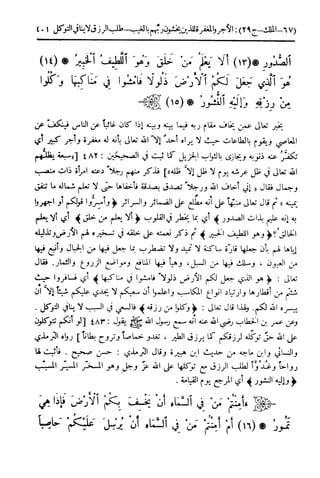 (٦٧ - الملك - ج ٢٩) : الأجر والمغفرة للذين يخشون ربهم بالغيب - طلب الرزق لا ينافي التوكل ٤٠١
ٱلصُّدُورِ ﴿١٣﴾ أَلَا يَعْلَمُ مَنْ خَلَقَ وَهُوَ ٱللَّطِيفُ ٱلْخَبِيرُ ﴿١٤﴾
هُوَ ٱلَّذِي جَعَلَ لَكُمُ ٱلْأَرْضَ ذَلُولًا فَٱمْشُوا فِي مَنَاكِبِهَا وَكُلُوا
مِن رِّزْقِهِ وَإِلَيْهِ ٱلنُّشُورُ ﴿١٥﴾
يخبر تعالى عمن يخاف مقام ربه فيما بينه وبينه إذا كان غائباً عن الناس فينكف عن
المعاصي ويقوم بالطاعات حيث لا يراه أحد إلا الله تعالى بأنه له مغفرة وأجر كبير أي
تكفر عنه ذنوبه ويجازى بالثواب الجزيل كما ثبت في الصحيحين : ٤٨٢ [سبعة يظلهم
الله تعالى في ظل عرشه يوم لا ظل إلا ظله] فذكر منهم رجلاً دعته امرأة ذات منصب
وجمال فقال : إني أخاف الله ورجلاً تصدق بصدقة فأخفاها حتى لا تعلم شماله ما تنفق
يمينه ، ثم قال تعالى منبهاً على أنه مطلع على الضمائر والسرائر ﴿وأسروا قولكم أو اجهروا
به إنه عليم بذات الصدور﴾ أي بما يخطر في القلوب ﴿ألا يعلم من خلق﴾ أي ألا يعلم
الخالق؟ ﴿وهو اللطيف الخبير﴾ ثم ذكر نعمته على خلقه في تسخيره لهم الأرض وتذليله
إياها لهم بأن جعلها قارة ساكنة لا تميد ولا تضطرب بما جعل فيها من الجبال وأنبع فيها
من العيون ، وسلك فيها من السبل ، وهيأ فيها المنافع ومواضع الزروع والثمار. فقال
تعالى : ﴿هو الذي جعل لكم الأرض ذلولاً فامشوا في مناكبها﴾ أي فسافروا حيث
شئتم من أقطارها وارتياد أنواع المكاسب واعلموا أن سعيكم لا يجدي عليكم شيئاً إلا أن
ييسره الله لكم. ولهذا قال تعالى : ﴿وكلوا من رزقه﴾ فالسعي في السبب لا ينافي التوكل .
وعن عمر بن الخطاب رضي الله عنه أنه سمع رسول الله ﷺ يقول : ٤٨٣ [لو أنكم تتوكلون
على الله حق توكله لرزقكم كما يرزق الطير ، تغدو خماصاً وتروح بطاناً] رواه الترمذي
والنسائي وابن ماجه من حديث ابن هبيرة وقال الترمذي : حسن صحيح . فأثبت لها
رواحاً وغدوّاً لطلب الرزق مع توكلها على الله عز وجل وهو المسخر المسير المسبب
﴿وإليه النشور﴾ أي المرجع يوم القيامة .
ءَأَمِنتُم مَّن فِي ٱلسَّمَآءِ أَن يَخْسِفَ بِكُمُ ٱلْأَرْضَ فَإِذَا هِيَ
تَمُورُ ﴿١٦﴾ أَمْ أَمِنتُم مَّن فِي ٱلسَّمَآءِ أَن يُرْسِلَ عَلَيْكُمْ حَاصِبًا